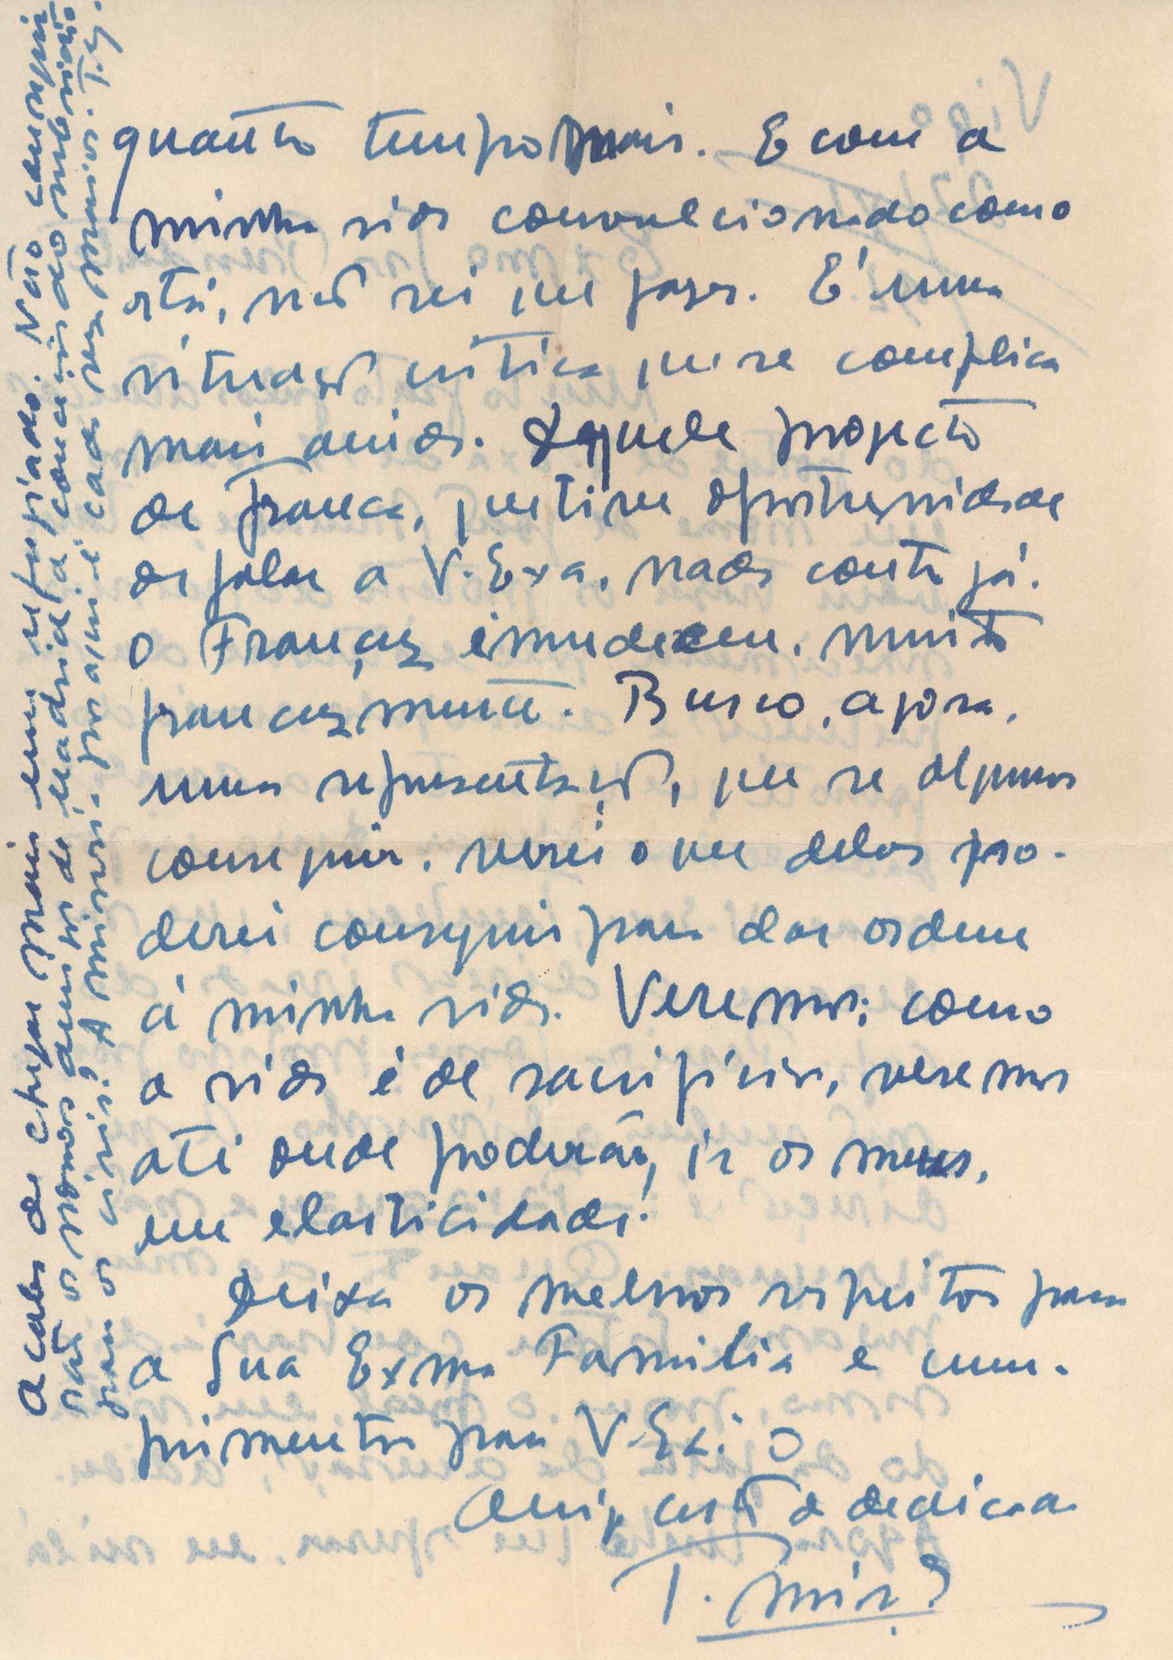 quanto tempo mais. E com a
minha vida convulcionada como
está, não sei que fazer. É uma
situação critica que se complica
mais ainda. Aquele projecto
de França, que tive oportunidade
de falar a V. Exa. nada conta já.
O Francez emudeceu, muito
francezmente. Busco, agora,
umas representações, que se algumas
conseguir, verei o que delas po-
derei conseguir para dar ordem
á minha vida. Veremos; como
a vida é de sacrificios, veremos
até onde poderão, ir os meus,
em elasticidade.
Deixa os melhores respeitos para
a Sua Exma Familia e cum-
primentos para V. Exa. o
Amigo certo e dedicado
T.
Acaba de chegar mais um refugiado. Não consegui
os nomes de Madrid
para os civis? A miseria é cada vez maior. T.